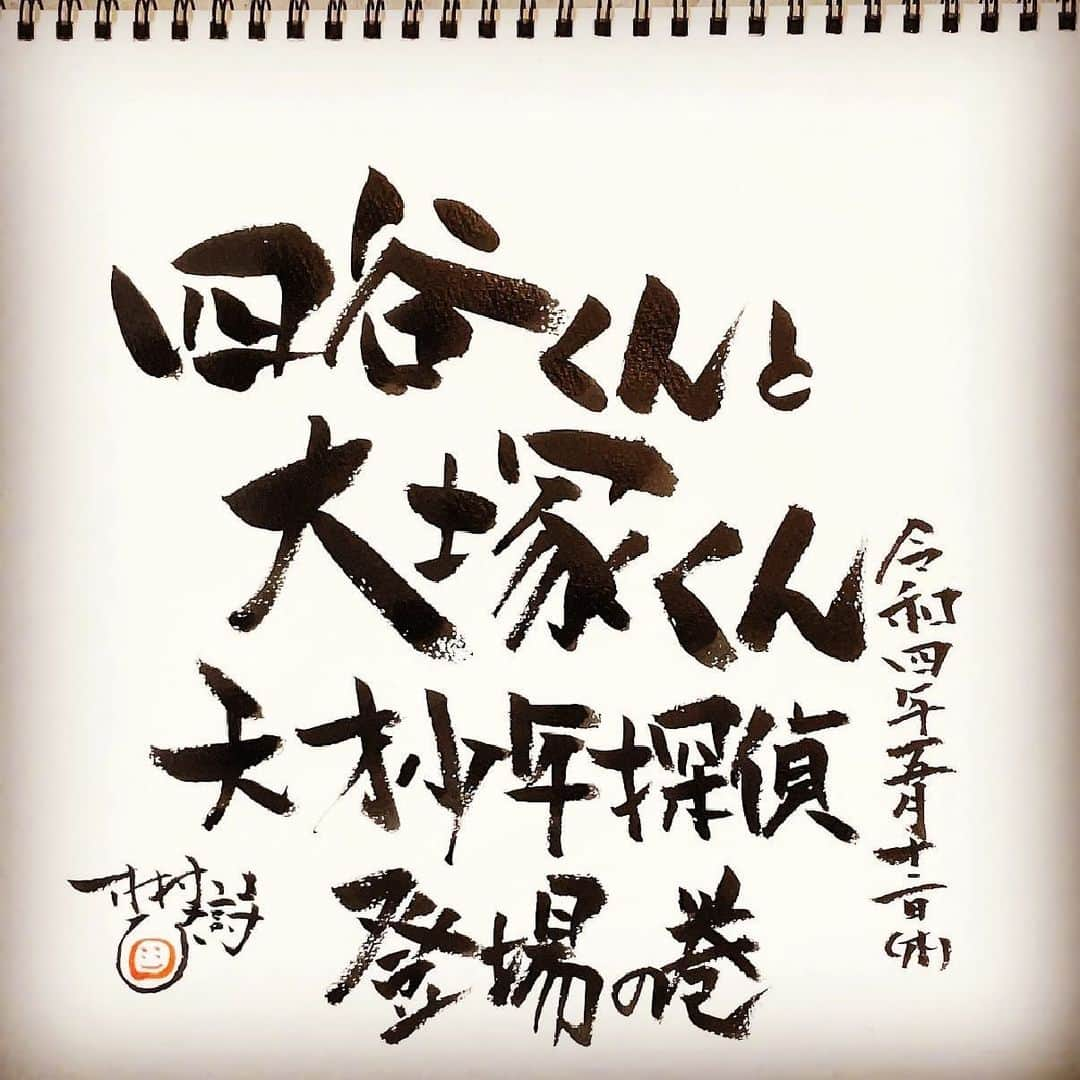 四谷くんと
大塚くん
天才少年探偵
登場の巻
令和四年五月十二日(木)